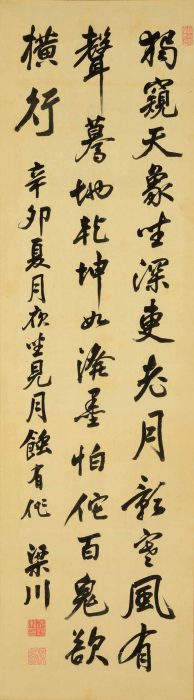 獨窺天象坐深更老月影寒風有
聲驀地乾坤如潑墨怕佗百鬼欲
橫行 辛卯夏月夜坐見月蝕有作 梁川